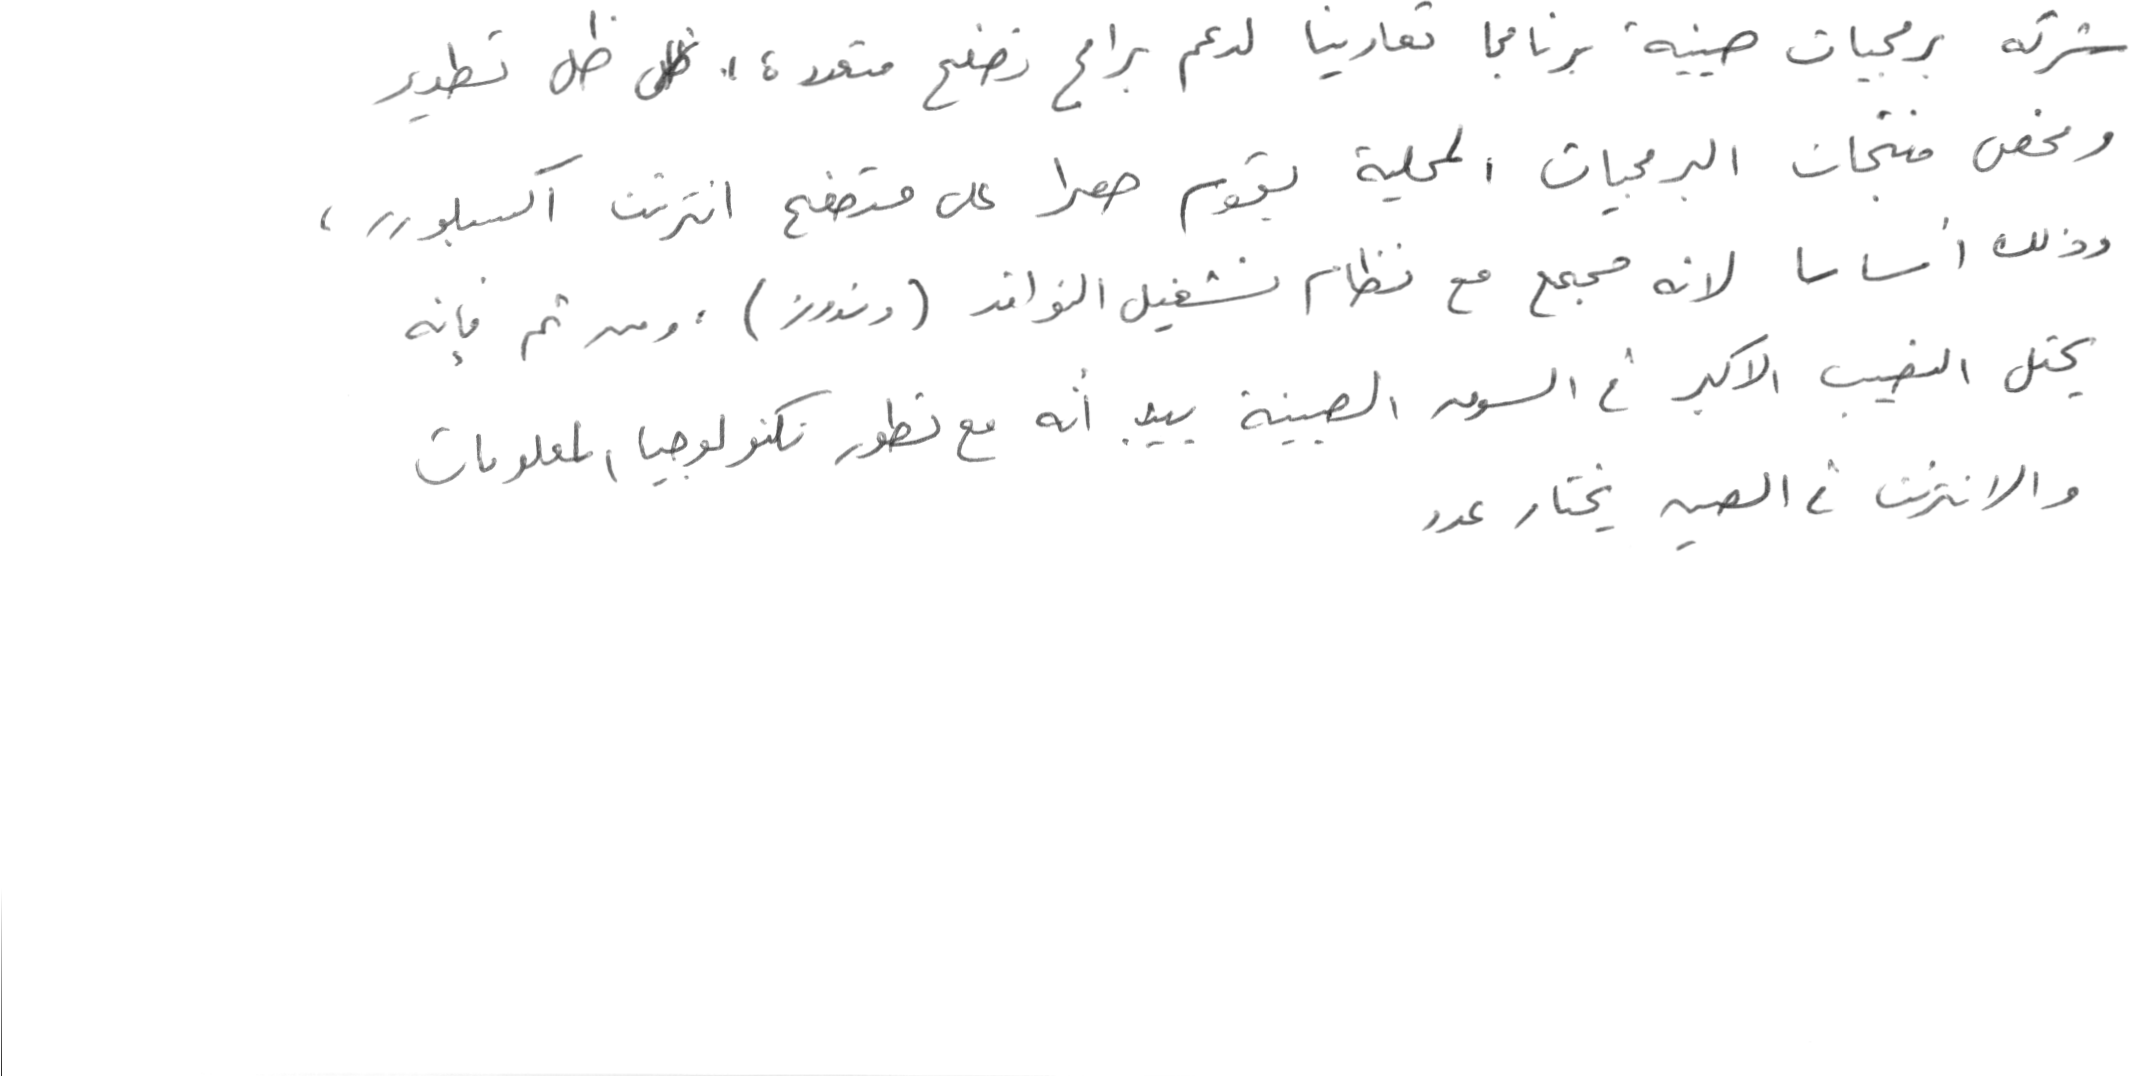 شركة برمجيات صينية برنامجا تعاونيا لدعم برامج تصفح متعددة، ظل تطوير
وفحص منتجات البرمجيات المحلية يقوم حصرا على متصفح انترنت اكسبلورر،
وذلك أساسا لانه مجمع مع نظام تشغيل النوافذ (وندوز)، ومن ثم فإنه
يحتل النصيب الاكبر في السوق الصينية بيد أنه مع تطور تكنولوجيا المعلومات
والانترنت في الصين يختار عدد